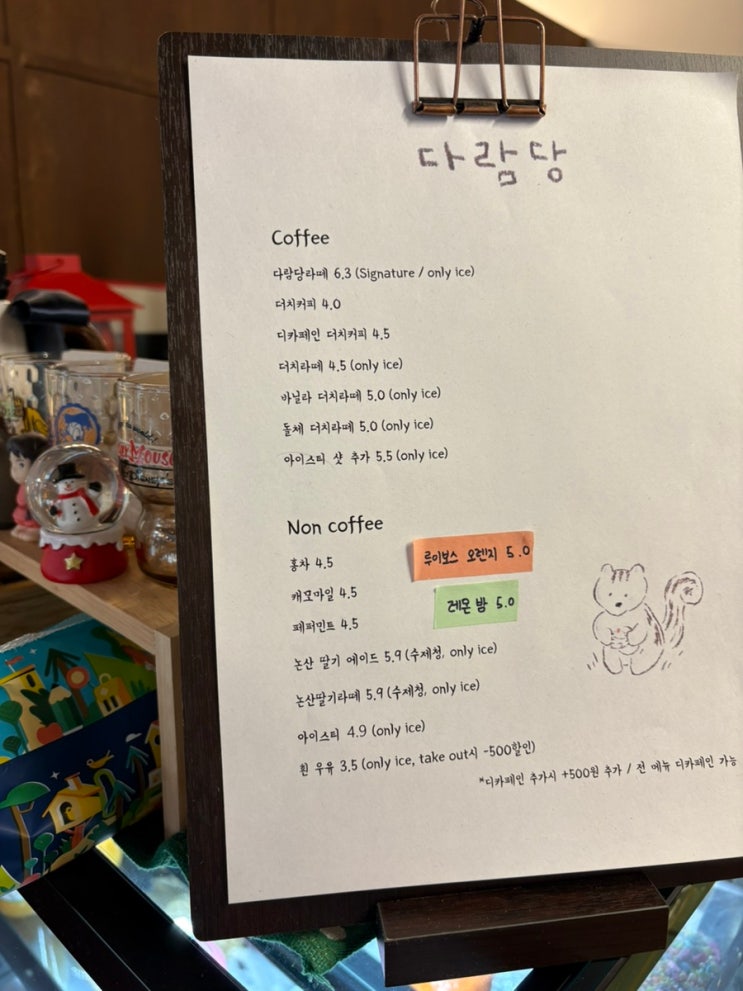 다람당
Coffee
다람당라떼 6.3 (Signature / only ice)
더치커피 4.0
디카페인 더치커피 4.5
더치라떼 4.5 (only ice)
바닐라 더치라떼 5.0 (only ice)
돌체 더치라떼 5.0 (only ice)
아이스티 샷 추가 5.5 (only ice)
Non coffee
홍차 4.5
루이보스 오렌지 5.0
캐모마일 4.5
레몬 밤 5.0
페퍼민트 4.5
논산 딸기 에이드 5.9 (수제청, only ice)
논산딸기라떼 5.9 (수제청, only ice)
아이스티 4.9 (only ice)
흰 우유 3.5 (only ice, take out시 -500할인)
*디카페인 추가시 +500원 추가 / 전 메뉴 디카페인 가능